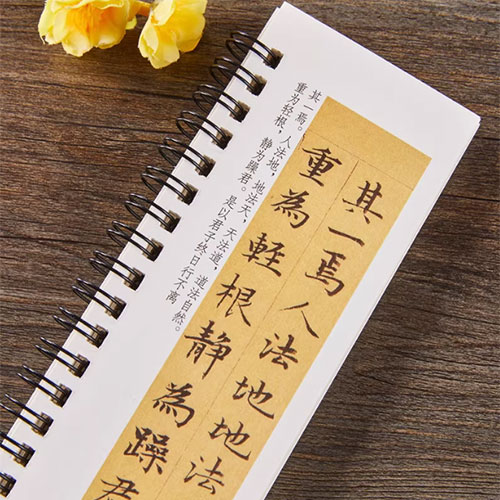 其一焉人法地地法
重為輕根静為躁君
其一焉。人法地，地法天，天法道，道法自然。
重为轻根，静为躁君。是以君子终日行不离